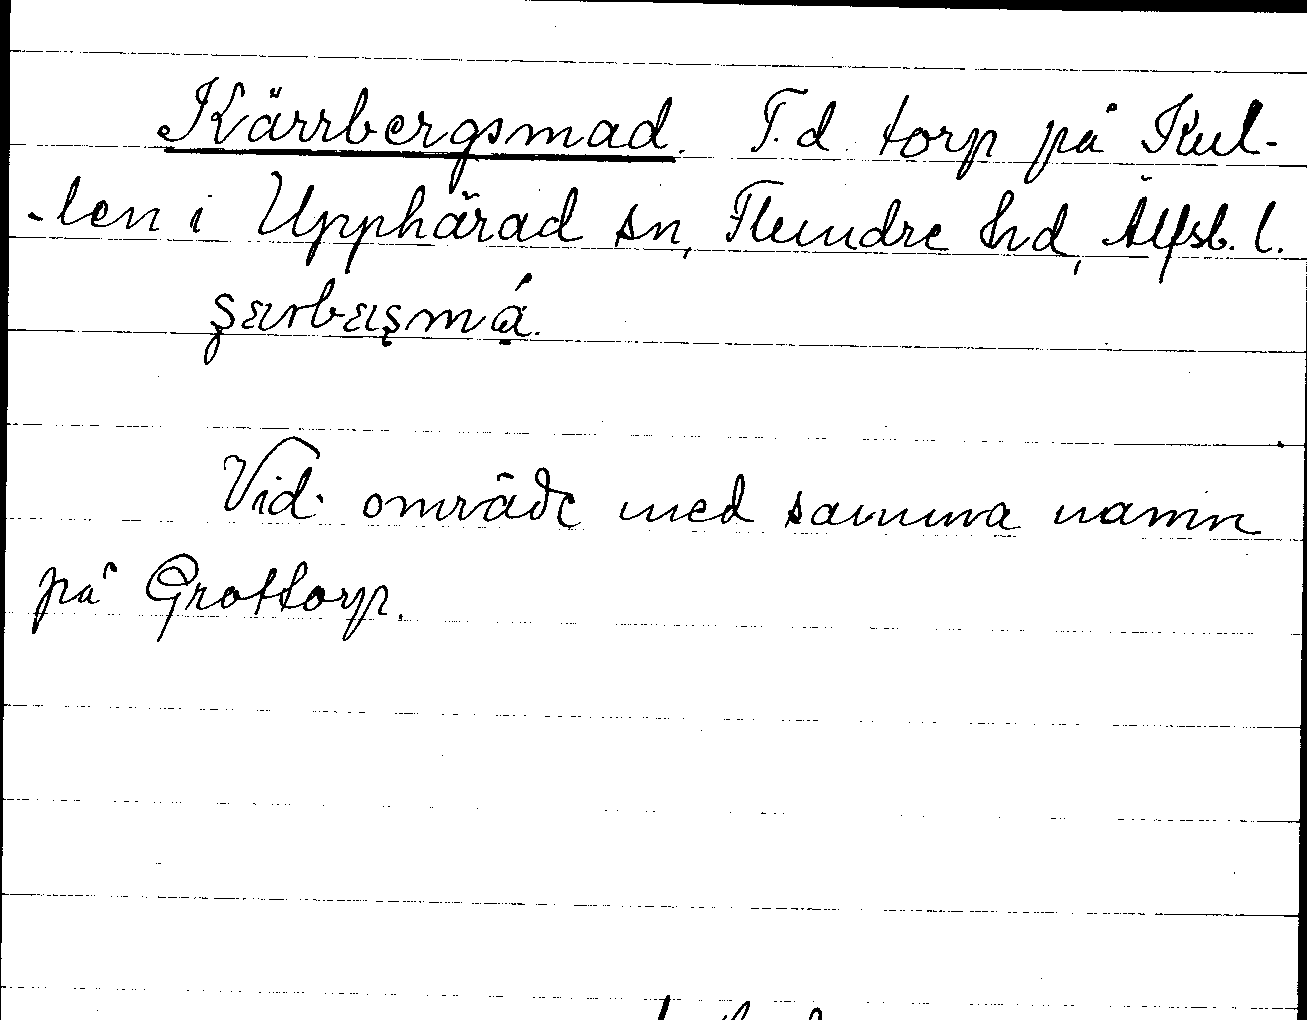 Kärrbergsmad. F.d. torp på Kul-
-len i Upphärad sn, Flundre hd, Älfsb. l.
Vid område med samma namn
på Grottorp.